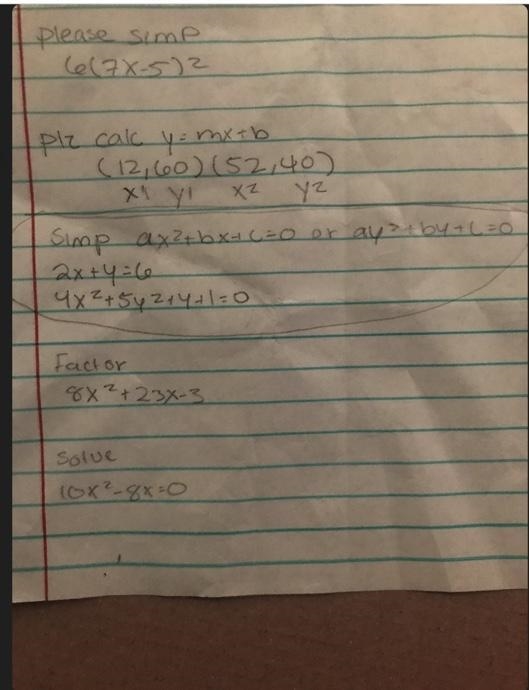 please simp
6(7x-5)2
plz calc y=mx+b
(12,60)(52,40)
x1 y1 x2 y2
Simp ax²+bx+c=0 or ay²+by+c=0
2x+y=6
4x²+5y2+y+1=0
Factor
8x²+23x-3
Solve
10x²-8x=0